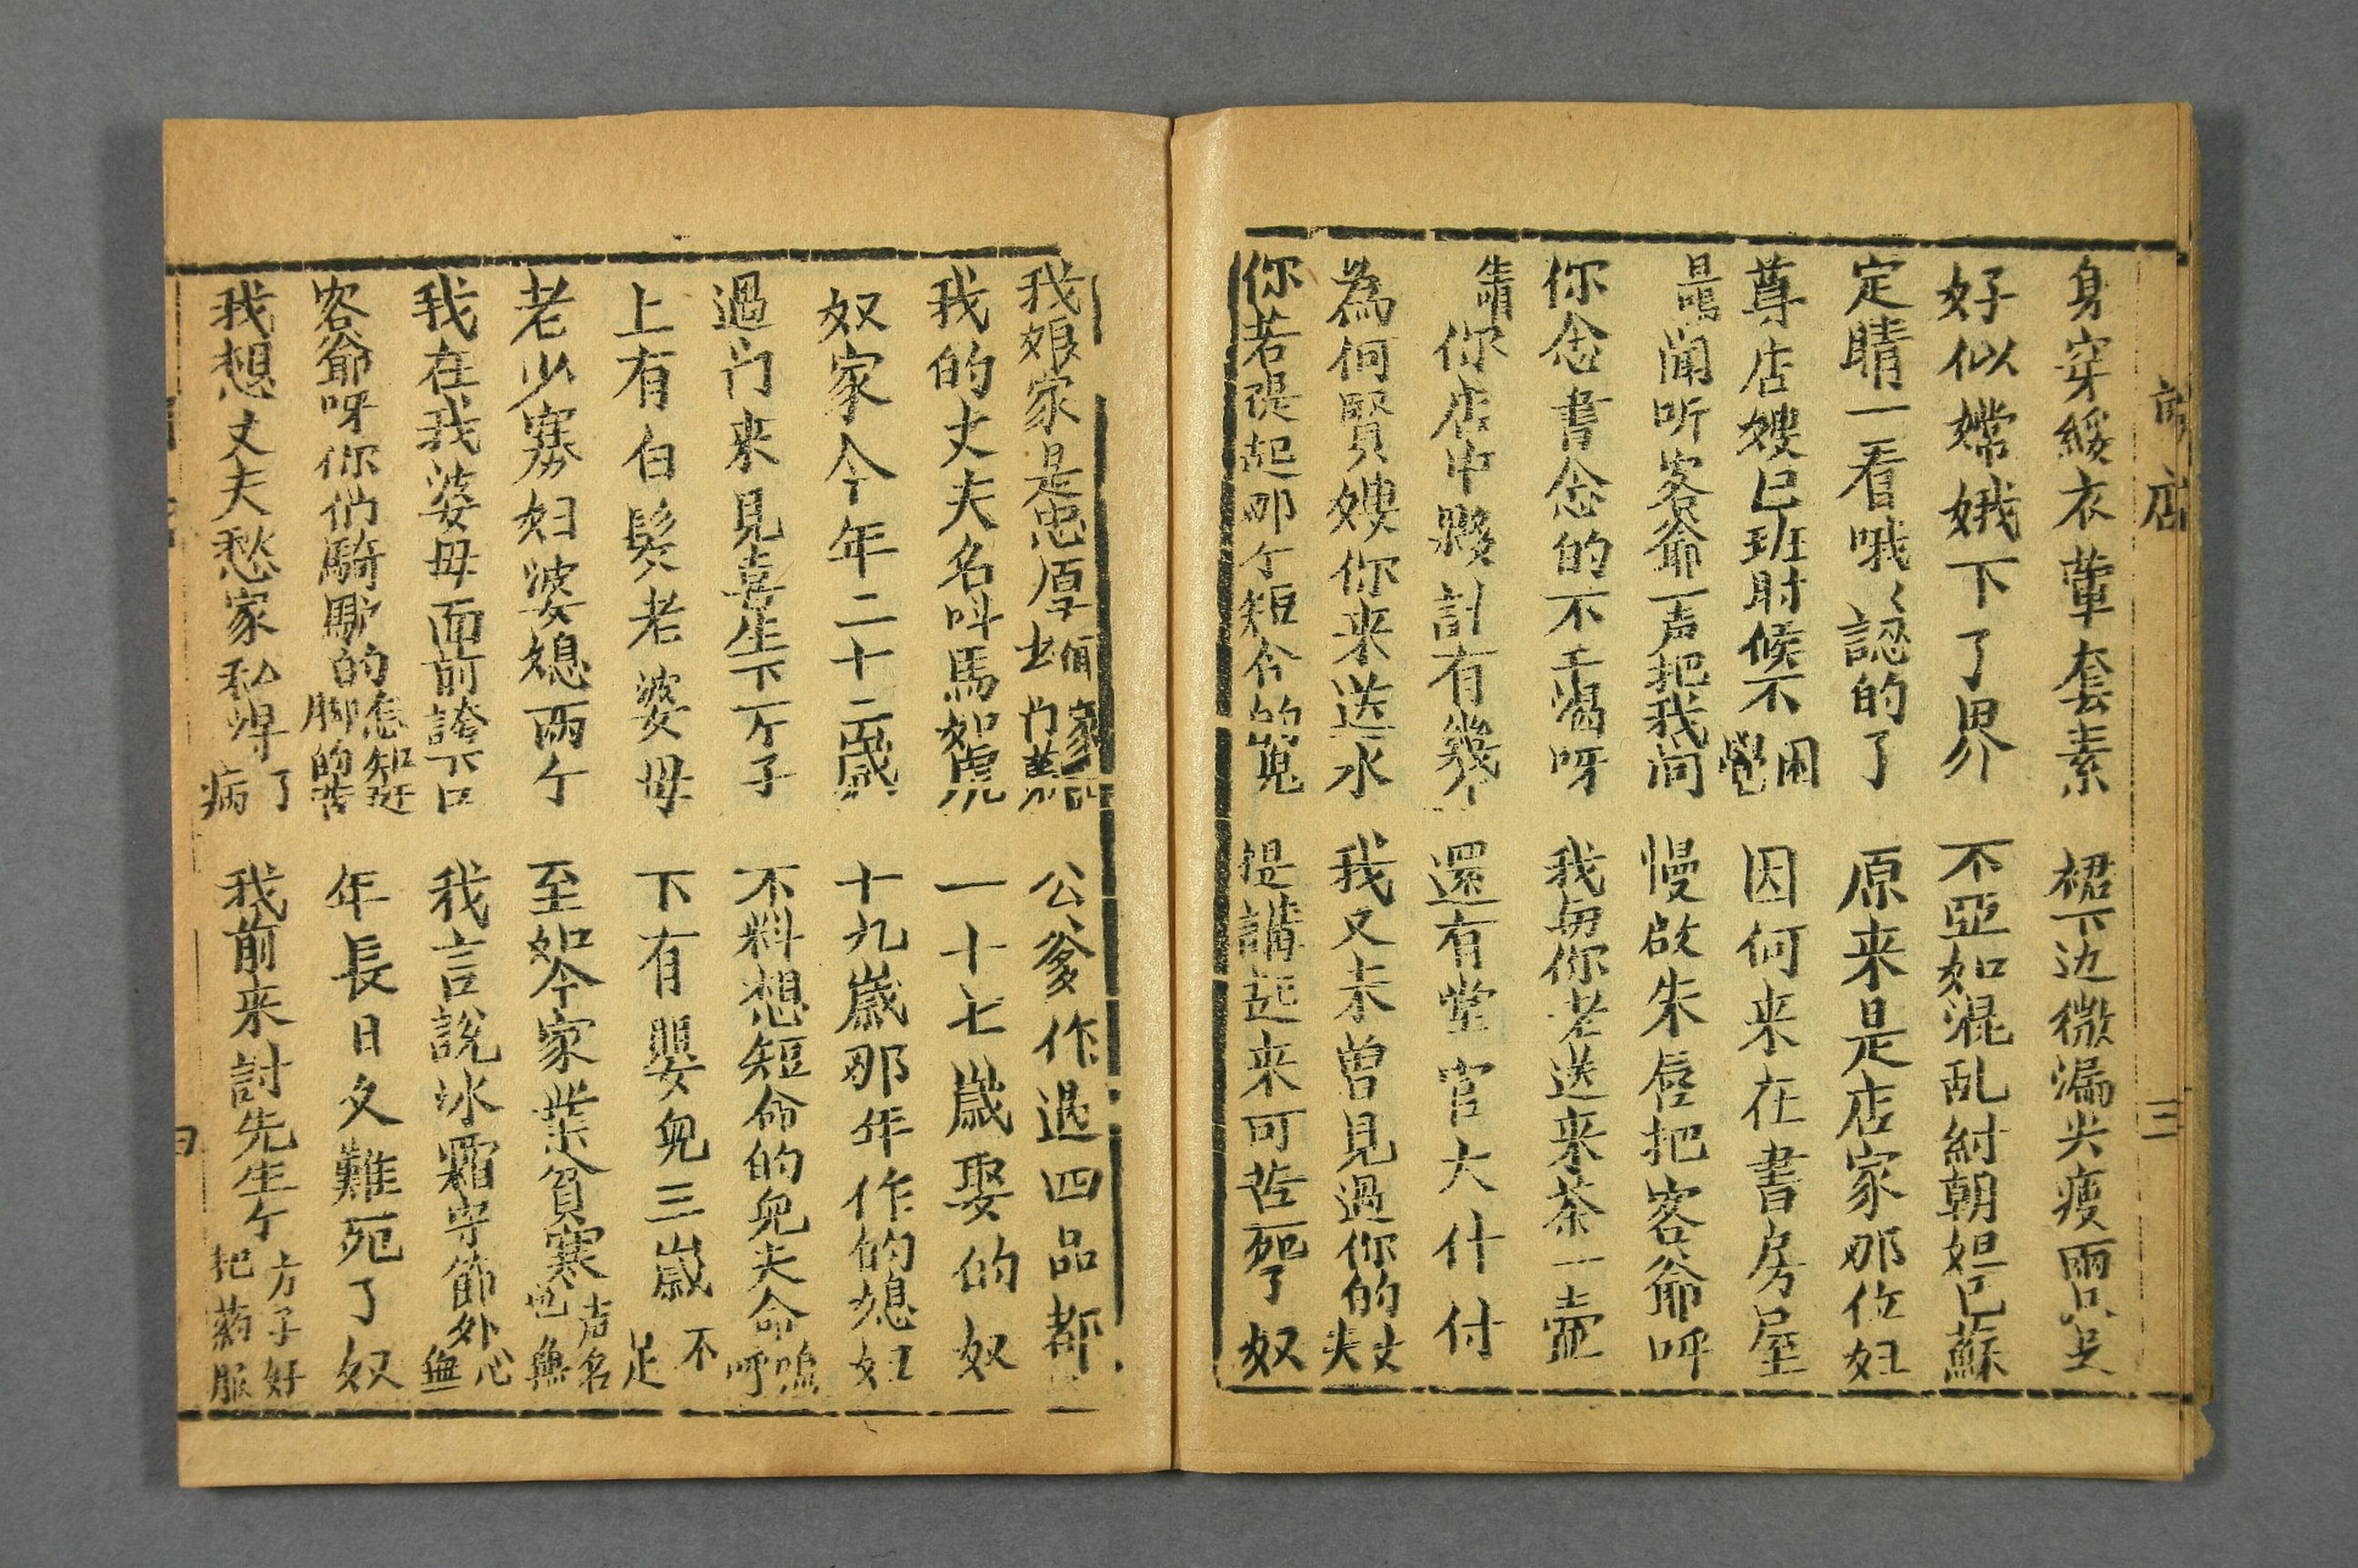 店 三
身穿緞衣葷套素 裙下边微漏尖瘦兩只足
好似嫦娥下了界 不亞如混乱紂朝妲己蘇
定睛一看哦認的了 原来是店家那位妇
尊店嫂已班时候不困覺 因何来在書房屋
聞听客爺一声把我问 慢啟朱唇把客爺呼
你念書念的不干渴呀 我与你老送来茶一壺
你店中夥計有幾个 還有堂官大什付
為何賢嫂你来送水 我又未曽見過你的丈夫
你若提起那个短命的鬼 提講起来可苦死了奴
我娘家是忠厚 公爹作過四品都
我的丈夫名叫馬如虎 一十七歲娶的奴
奴家今年二十二歲 十九歲那年作的媳妇
過门来見喜生下一个子 不料想短命的兒夫命嗚呼
上有白髮老婆母 下有嬰兒三歲不足
老少寡妇婆媳兩个 至如今家業貧寒也無声名
我在我婆母面前誇下口 我言說冰霜守節外無心
客爺呀你们騎馿的怎知赶脚的苦 年長日久難死了奴
我想丈夫愁家私得了病 我前来討先生个方子好把药服